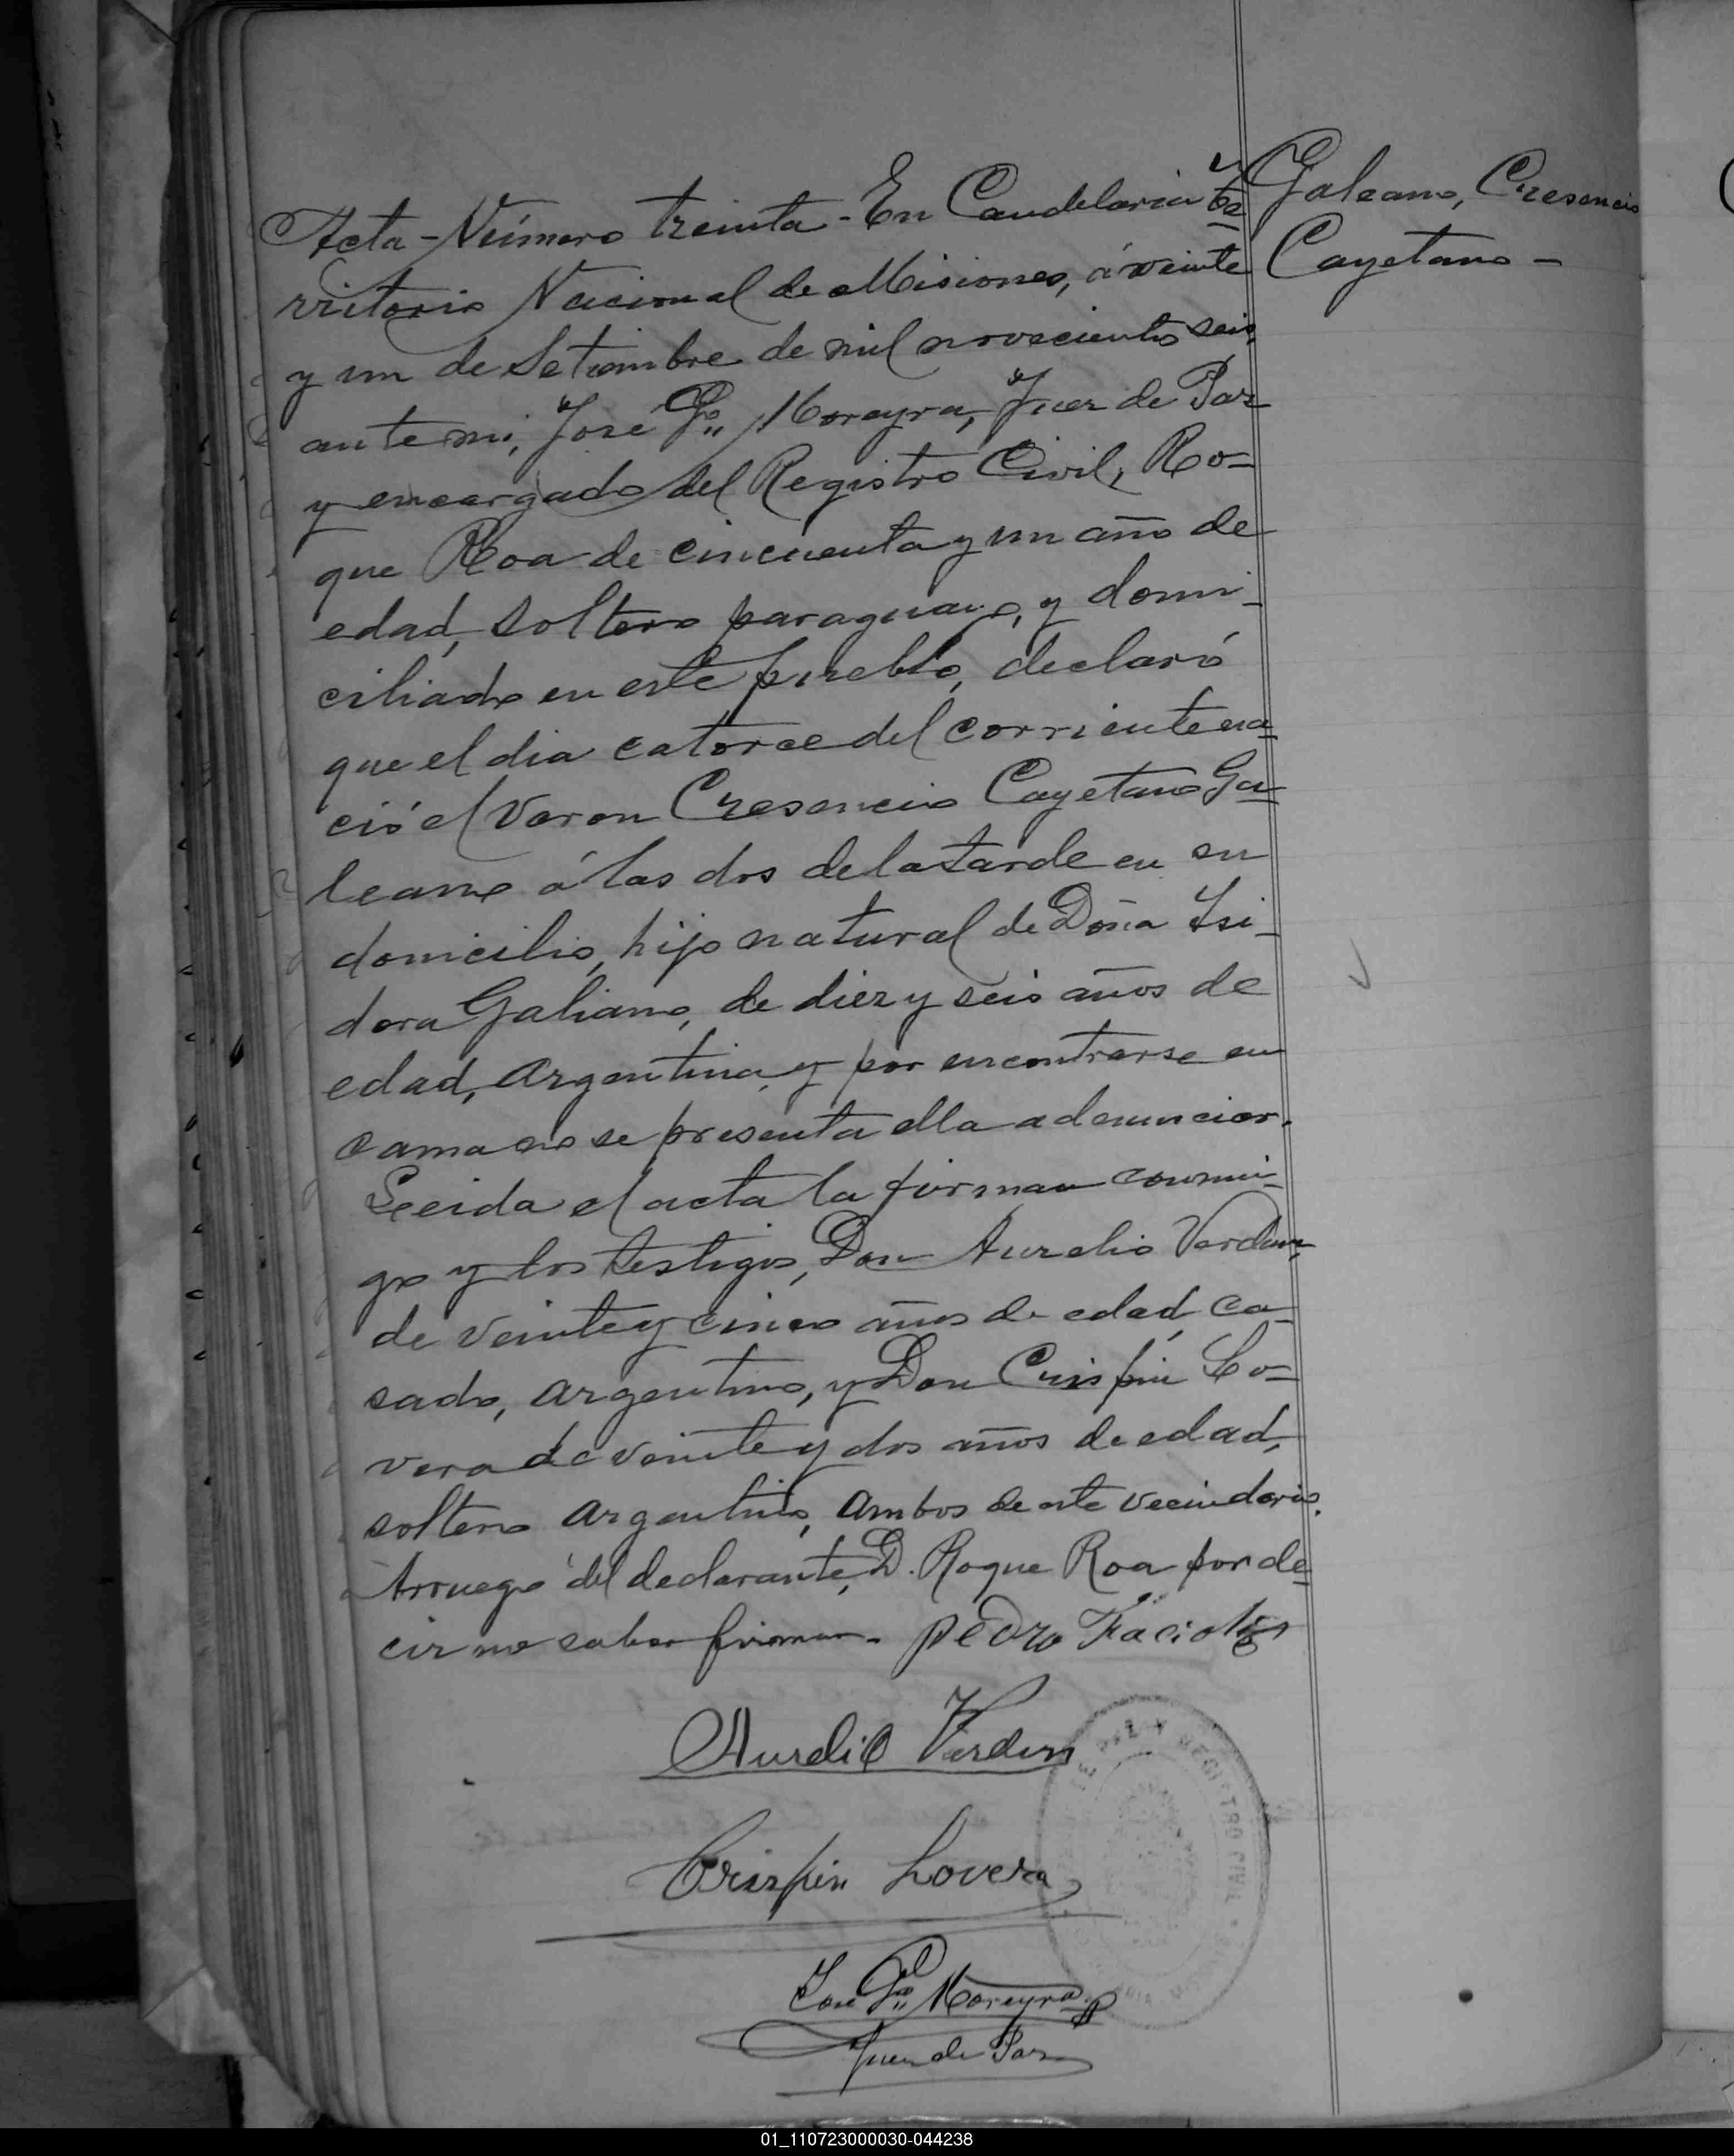 Galeano, Cresencio
Cayetano -
Acta - Número treinta - En Candelaria Te=
rritorio Nacional de Misiones, á veinte
y un de Setiembre de mil novecientos seis,
ante mi, José Gº Moreyra, Juez de Paz
y encargado del Registro Civil, Ro=
que Roa de cincuenta y un año de
edad, soltero paraguayo, y domi-
ciliado en este pueblo, declaró
que el dia catorce del corriente na=
ció el varon Cresencio Cayetano Ga=
leano á las dos de la tarde en su
domicilio, hijo natural de Doña Isi-
dora Galiano, de diez y seis años de
edad, argentina, y por encontrarse en
cama no se presenta ella a denunciar.
Leeida el acta la firman conmi-
go y los testigos, Don Aurelio Verdun,
de veinte y cinco años de edad, ca-
sado, argentino, y Don Crispin Lo=
vera de veinte y dos años de edad,
soltero argentino, ambos de este vecindario.
Arruego del declarante, D. Roque Roa por de=
cir no saber firmar. Pedro
Aurelio Verdun
Crispin Lovera
José Gº Moreyra
Juez de Paz
DE PAZ Y REGISTRO CIVIL
01_110723000030-044238